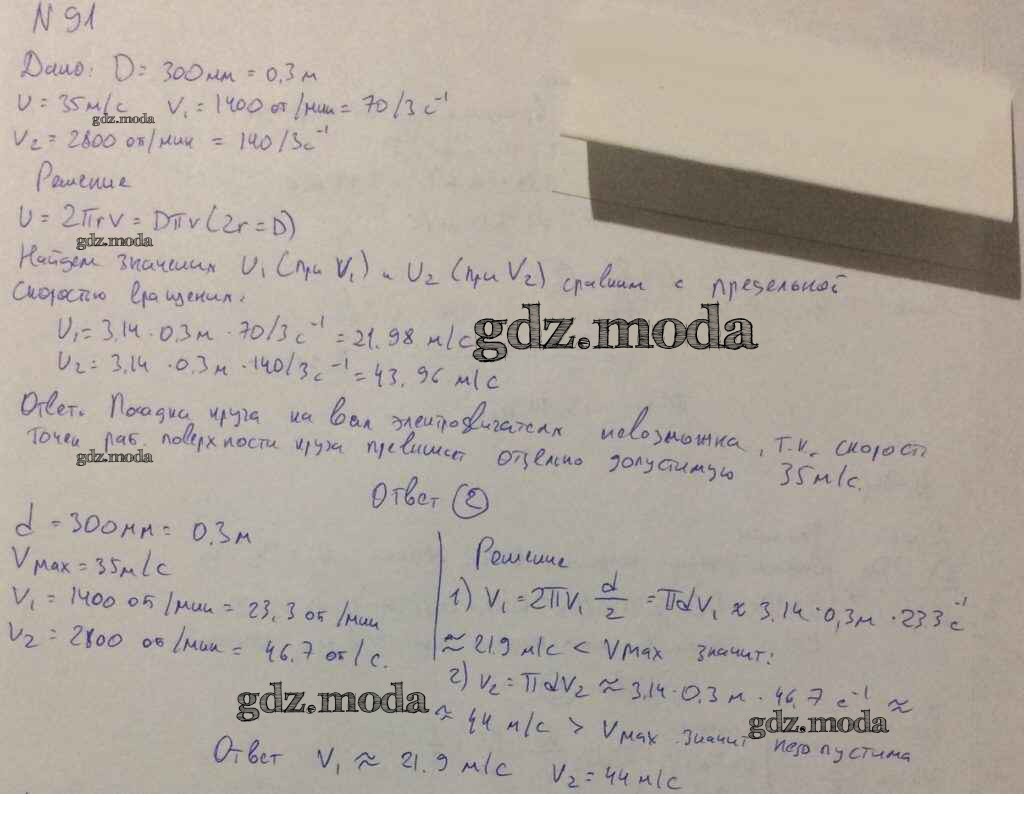 N 91
Дано: D = 300 мм = 0,3 м
υ = 35 м/с V₁ = 1400 об/мин = 70/3 с⁻¹
gdz.moda
V₂ = 2800 об/мин = 140/3 с⁻¹
Решение
υ = 2πrν = Dπν (2r = D)
gdz.moda
Найдем значения υ₁ (при V₁) и υ₂ (при V₂) сравним с предельной
скоростью вращения:
υ₁ = 3,14 · 0,3 м · 70/3 с⁻¹ = 21.98 м/с
gdz.moda
υ₂ = 3,14 · 0,3 м · 140/3 с⁻¹ = 43,96 м/с
Ответ. Посадка круга на вал электродвигателя невозможна, т.к. скорость
точек раб. поверхности круга превышает отдельно допустимую 35 м/с.
gdz.moda
Ответ 2
d = 300 мм = 0.3 м
Vmax = 35 м/с
V₁ = 1400 об/мин = 23,3 об/мин
V₂ = 2800 об/мин = 46.7 об/с.
Решение
1) V₁ = 2πV₁ d/2 = πdV₁ ≈ 3,14 · 0,3 м · 23.3 с⁻¹
≈ 21.9 м/с < Vmax значит:
2) V₂ = πdV₂ ≈ 3,14 · 0.3 м · 46,7 с⁻¹ ≈
≈ 44 м/с > Vmax значит недопустима
gdz.moda
gdz.moda
Ответ V₁ ≈ 21.9 м/с V₂ = 44 м/с